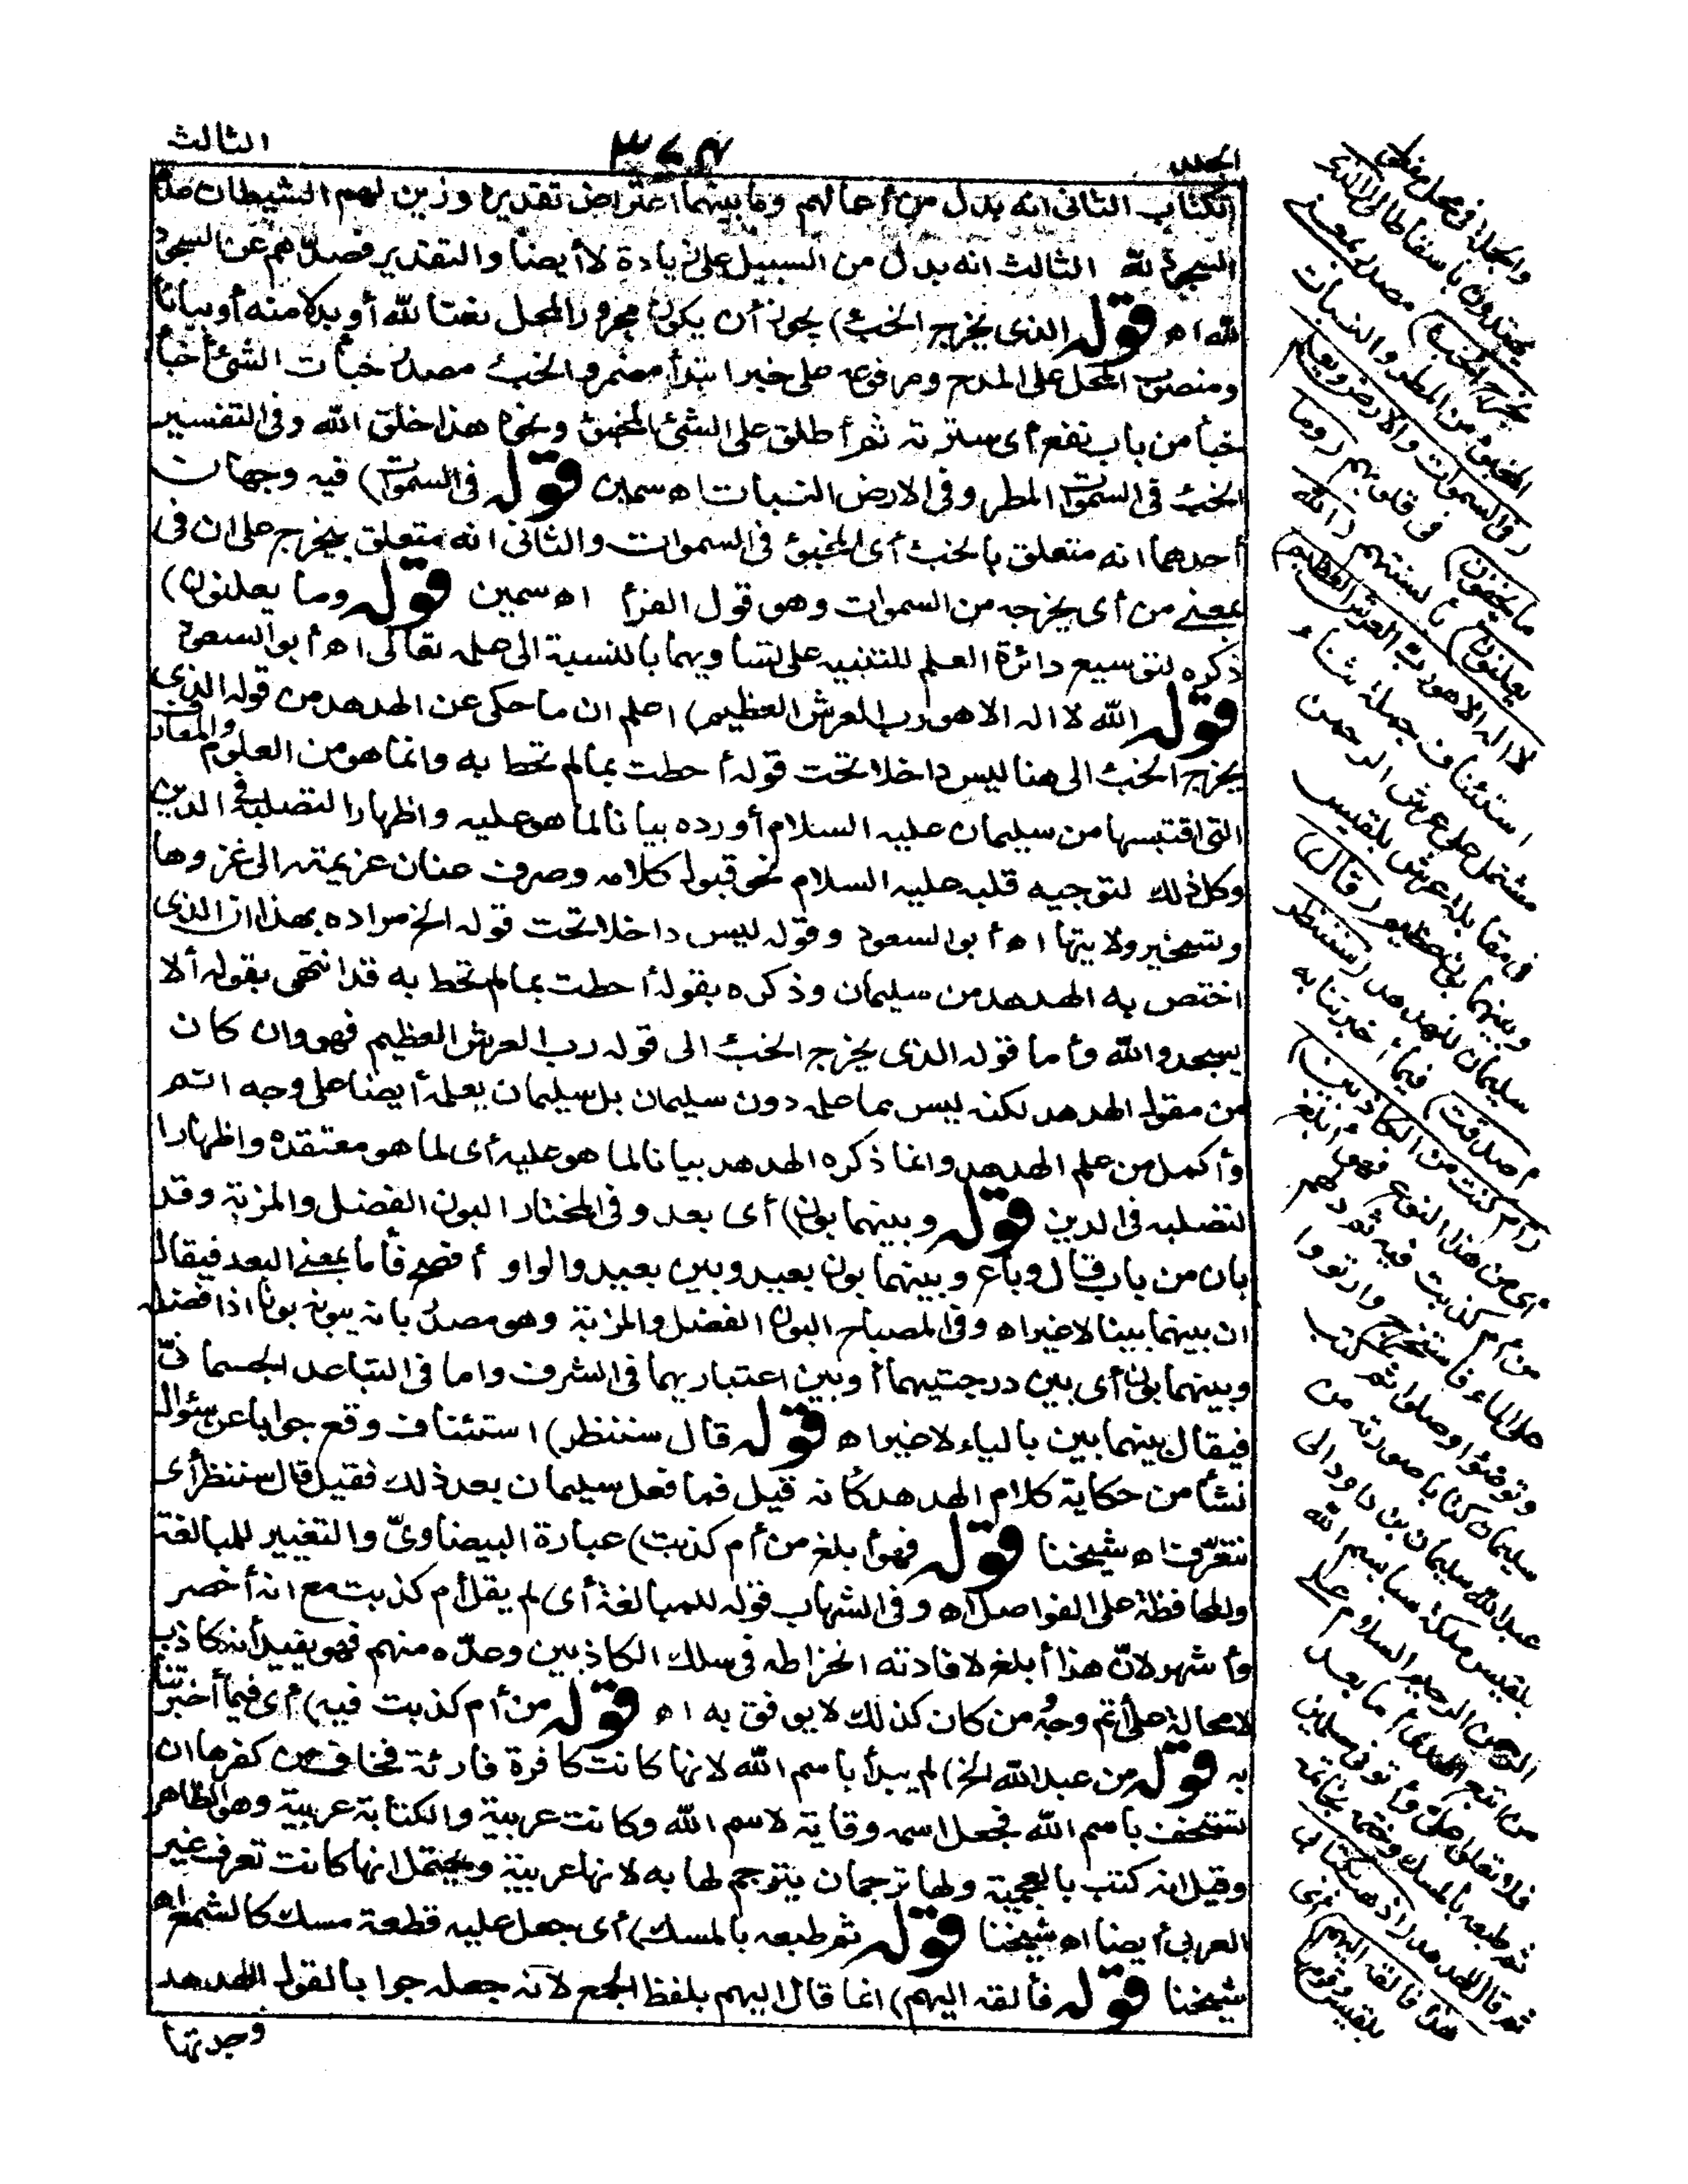 الجلد
٣٧٤
الثالث
الكتاب الثانى انه بدل من أعمالهم وما بينهما اعتراض تقديره وزين لهم الشيطان عدم
السجود لله الثالث انه بدل من السبيل على زيادة لا أيضا والتقدير فصدّهم عن السجود
لله اه قوله الذى يخرج الخبء) يجوز أن يكون مجرور المحل نعتا لله أو بدلا منه أو بيانا
ومنصوب المحل على المدح ومرفوعه على خبر ابتدأ مضمر والخبء مصدر خبأت الشئ أخبأ
خبأ من باب نفع أى سترته ثم أطلق على الشئ المخبوء ونحوه هذا خلق الله وفى التفسير
الخبء فى السموات المطر وفى الارض النبات اه سمين قوله فى السموات) فيه وجهان
أحدهما انه متعلق بالخبء أى المخبوء فى السموات والثانى انه متعلق بيخرج على ان فى
بمعنى من أى يخرجه من السموات وهو قول الفرأ اه سمين قوله وما يعلنون)
ذكره لتوسيع دائرة العلم للتنبيه على تساويهما بالنسبة الى علمه تعالى اه أبو السعود
قوله الله لا اله الا هو رب العرش العظيم) اعلم ان ما حكى عن الهدهد من قوله الذى
يخرج الخبء الى هنا ليس داخلا تحت قوله أحطت بما لم تحط به وانما هو من العلوم والمعارف
التى اقتبسها من سليمان عليه السلام أورده بيانا لما هو عليه واظهارا لتصلبه فى الدين
وكل ذلك لتوجيه قلبه عليه السلام نحو قبول كلامه وصرف عنان عزيمته الى غزوها
وتسخير ولايتها اه أبو السعود وقوله ليس داخلا تحت قوله الخ مراده بهذا ان الذى
اختص به الهدهد من سليمان وذكره بقوله أحطت بما لم تحط به قد انتهى بقوله ألا
يسجدوا لله وأما قوله الذى يخرج الخبء الى قوله رب العرش العظيم فهو وان كان
من مقول الهدهد لكنه ليس مما علمه دون سليمان بل سليمان يعلمه أيضا على وجه اتم
وأكمل من علم الهدهد وانما ذكره الهدهد بيانا لما هو عليه أى لما هو معتقده واظهارا
لتصلبه فى الدين قوله وبينهما بون) أى بعد وفى المختار البون الفضل والمزية وقد
بان من باب قال وباع وبينهما بون بعيد وبين بعيد والواو أفصح فأما بمعنى البعد فيقال
ان بينهما بينا لا غير اه وفى المصباح البون الفضل والمزية وهو مصدر بانه يبونه بونا اذا فضله
وبينهما بون أى بين درجتيهما أو بين اعتباريهما فى الشرف واما فى التباعد الجسمانىّ
فيقال بينهما بين بالياء لا غير اه قوله قال سننظر) استئناف وقع جوابا عن سؤال
نشأ من حكاية كلام الهدهد كأنه قيل فما فعل سليمان بعد ذلك فقيل قال سننظر أى
نتعرّف اه شيخنا قوله فهو أبلغ من أم كذبت) عبارة البيضاوىّ والتغيير للمبالغة
وللمحافظة على الفواصل اه وفى الشهاب قوله للمبالغة أى لم يقل أم كذبت مع انه أخصر
وأشهر لانّ هذا أبلغ لافادته انخراطه فى سلك الكاذبين وعدّه منهم فهو يفيد أنه كاذب
لا محالة على أتم وجه ومن كان كذلك لا يوفق به اه قوله من أم كذبت فيه) أى فيما أخبرتنا
به قوله من عبد الله الخ) لم يبدأ باسم الله لانها كانت كافرة قارئة فخاف من كفرها ان
تستخف باسم الله فجعل اسمه وقاية لاسم الله وكانت عربية والكتابة عربية وهو الظاهر
وقيل انه كتب بالعجمية ولها ترجمان يترجم لها به لانها عربية ويحتمل انها كانت تعرف غير
العربى أيضا اه شيخنا قوله ثم طبعه بالمسك) أى جعل عليه قطعة مسك كالشمع اه
شيخنا قوله فألقه اليهم) انما قال اليهم بلفظ الجمع لانه جعله جوابا لقول الهدهد
وجدتها
والجملة فى محل مفعول
يهتدون باسقاط الى (الذى
يخرج الخبء) مصدر بمعنى
المخبوء من المطر والنبات
(فى السموات والارض ويعلم
ما يخفون) فى قلوبهم (وما
يعلنون) بألسنتهم (الله
لا اله الا هو رب العرش العظيم)
استئناف جملة ثناء
مشتمل على عرش الرحمن
فى مقابلة عرش بلقيس
وبينهما بون عظيم (قال)
سليمان للهدهد (سننظر
أصدقت) فيما أخبرتنا به
(أم كنت من الكاذبين)
أى من هذا النوع فهو أبلغ
من أم كذبت فيه ثم دلهم
على الماء فاستخرج وارتووا
وتوضؤا وصلوا ثم كتب
سليمان كتابا صورته من
عبد الله سليمان بن داود الى
بلقيس ملكة سبا بسم الله
الرحمن الرحيم السلام على
من اتبع الهدى أما بعد
فلا تعلوا علىّ وأتونى مسلمين
ثم طبعه بالمسك وختمه بخاتمه
ثم قال للهدهد (اذهب بكتابى
هذا فألقه اليهم) أى
بلقيس وقومها